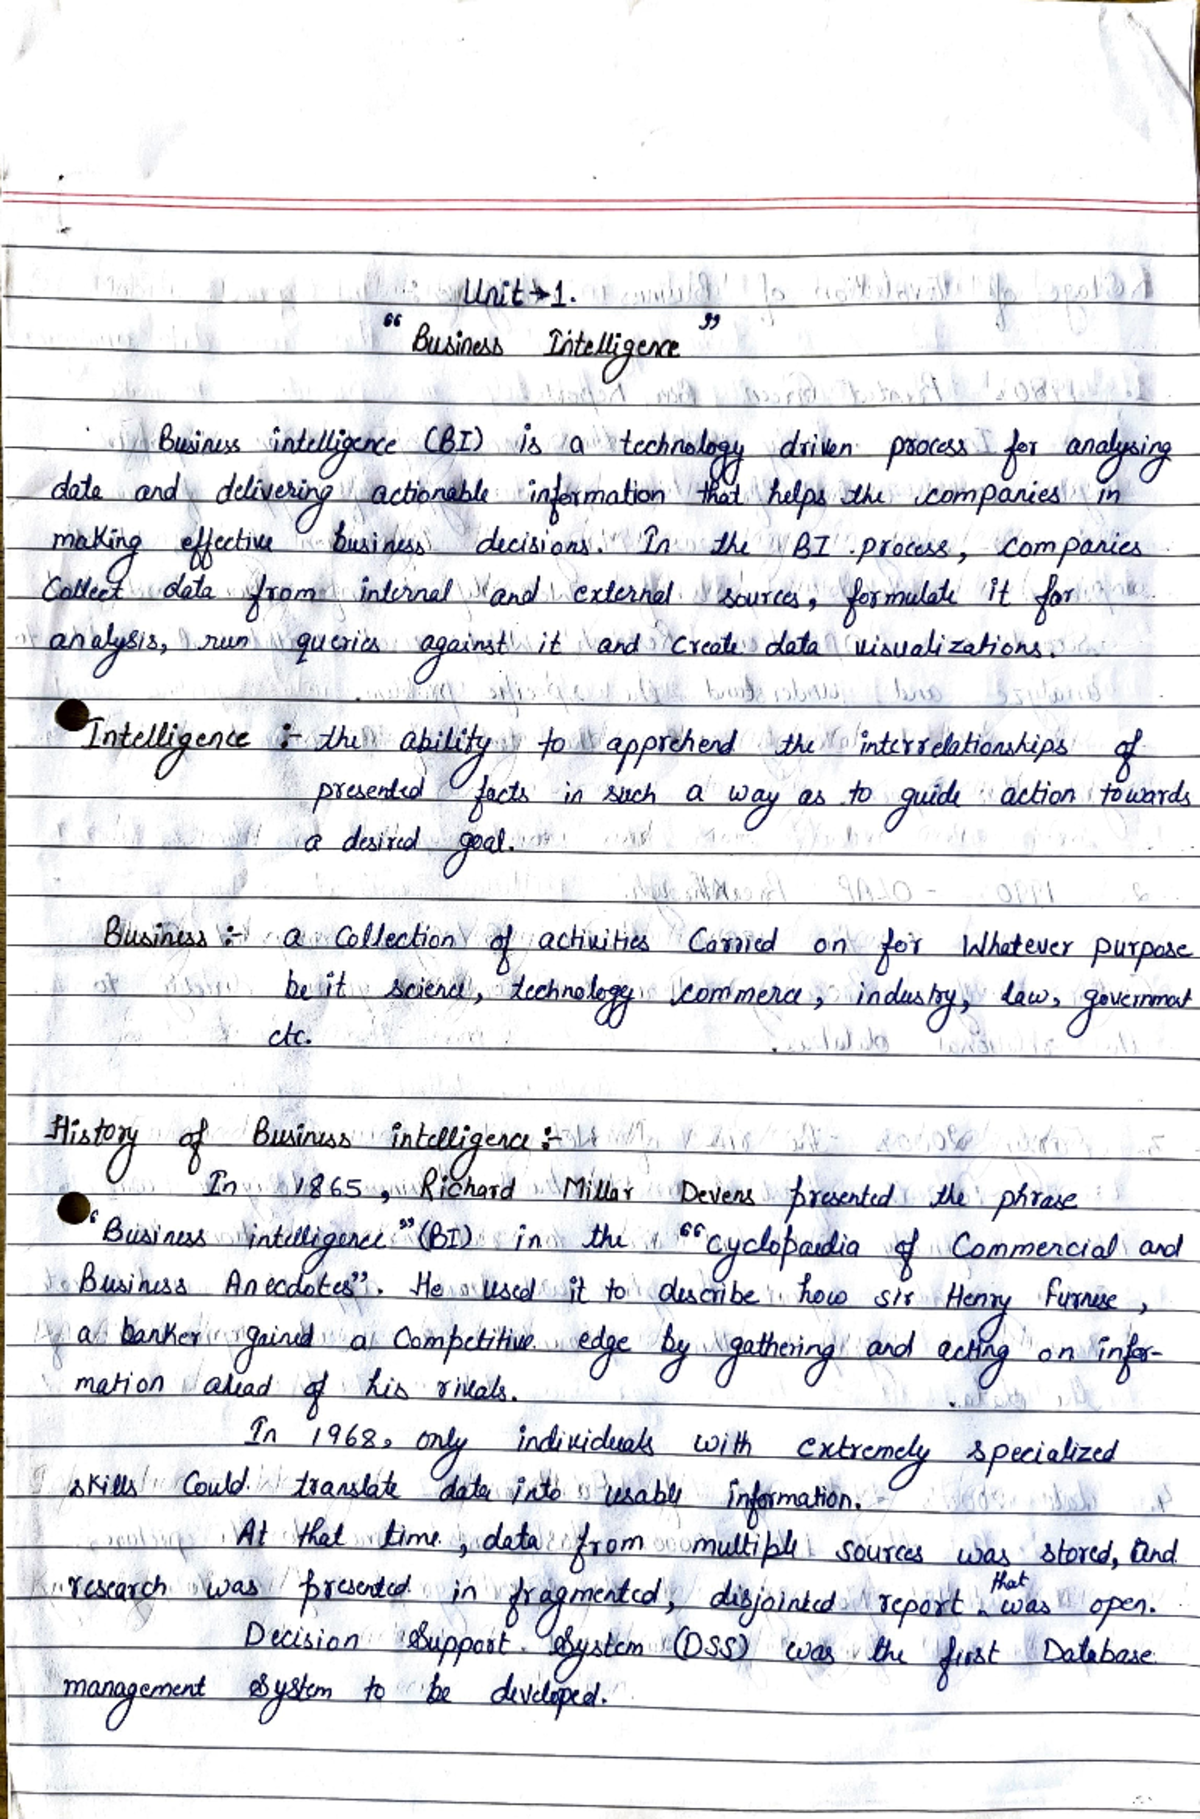 Unit → 1.
"Business Intelligence"
Business intelligence (BI) is a technology driven process for analysing
data and delivering actionable information that helps the companies in
making effective business decisions. In the BI process, companies
Collect data from internal and external sources, formulate it for
analysis, run queries against it and create data visualizations.
Intelligence :- the ability to apprehend the interrelationships of
presented facts in such a way as to guide action towards
a desired goal.
Business :- a collection of activities Carried on for Whatever purpose
be it science, technology commerce, industry, law, government
etc.
History of Business intelligence :-
In 1865, Richard Millar Devens presented the phrase
"Business intelligence" (BI) in the "cyclopaedia of Commercial and
Business Anecdotes". He used it to describe how sir Henry Furnese,
a banker gained a Competitive edge by gathering and acting on infor-
mation ahead of his rivals.
In 1968, only individuals with extremely specialized
skills Could translate data into usable information.
At that time, data from multiple sources was stored, and
research was presented in fragmented, disjointed report that was open.
Decision Support System (DSS) was the first Database
management System to be developed.